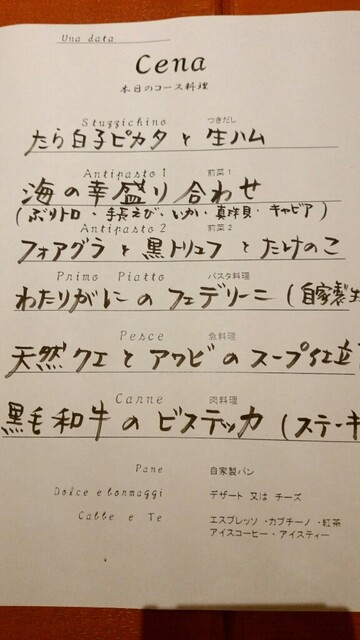 Una data
Cena
本日のコース料理
Stuzzichino つきだし
たら白子ピカタと生ハム
Antipasto 1 前菜1
海の幸盛り合わせ
(ぶりトロ・手長えび・いか・真珠貝・キャビア)
Antipasto 2 前菜2
フォアグラと黒トリュフとたけのこ
Primo Piatto パスタ料理
わたりがにのフェデリーニ(自家製生
Pesce 魚料理
天然クエとアワビのスープ仕立
Carne 肉料理
黒毛和牛のビステッカ(ステーキ
Pane 自家製パン
Dolce e formaggi デザート 又は チーズ
Caffe e Te エスプレッソ・カプチーノ・紅茶
アイスコーヒー・アイスティー